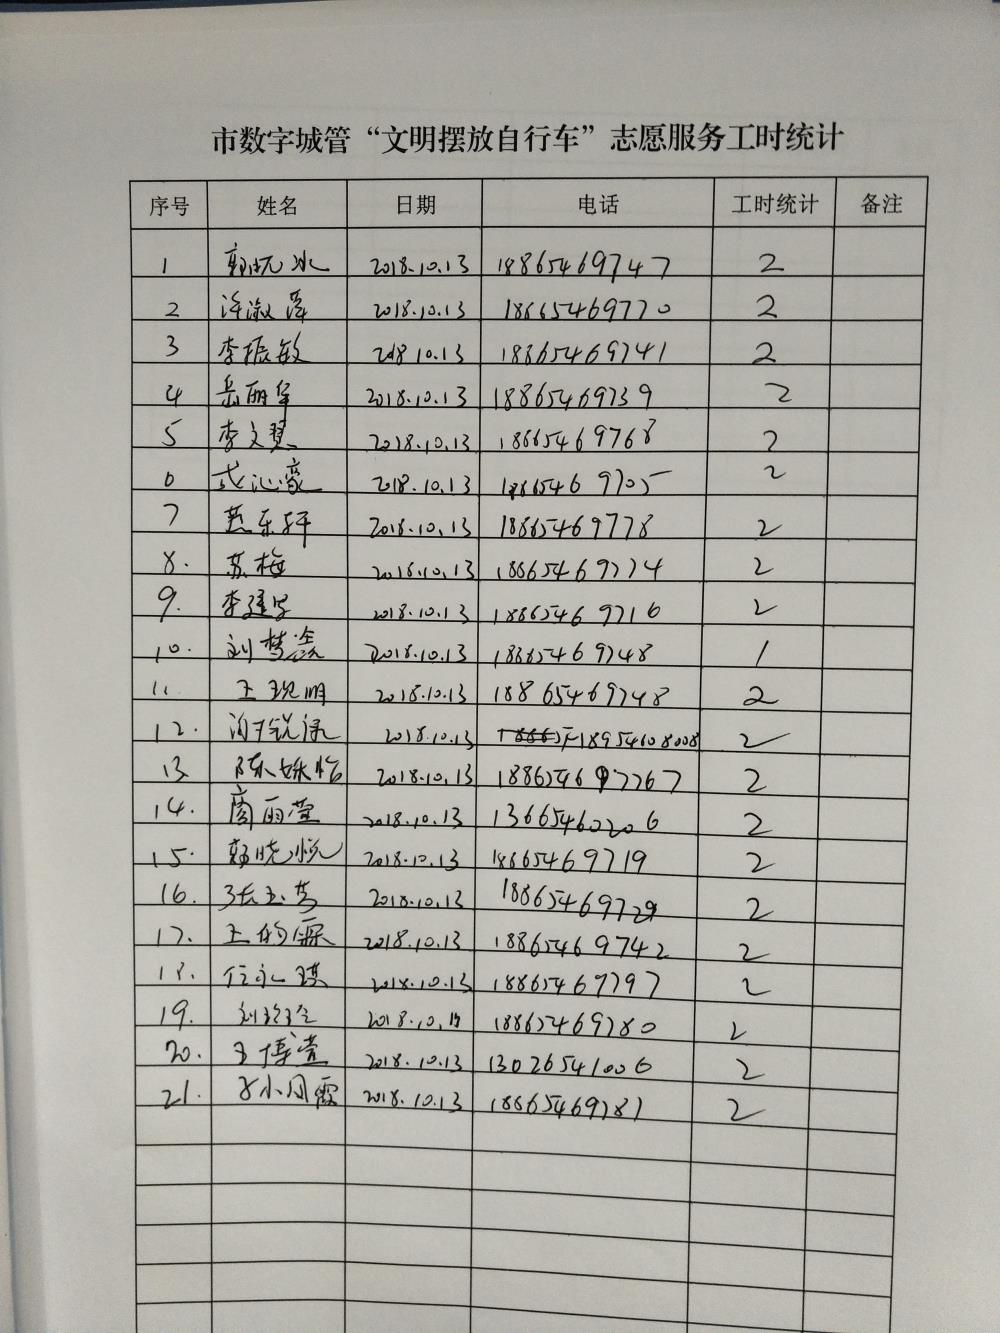 市数字城管“文明摆放自行车”志愿服务工时统计
序号 姓名 日期 电话 工时统计 备注
1 2018.10.13 18865469747 2
2 2018.10.13 18865469770 2
3 李振敏 2018.10.13 18865469741 2
4 岳丽华 2018.10.13 18865469739 2
5 李文慧 2018.10.13 18865469768 2
6 2018.10.13 18865469705 2
7 燕东轩 2018.10.13 18865469778 2
8. 苏梅 2018.10.13 18865469774 2
9. 李建华 2018.10.13 18865469716 2
10. 刘梦 2018.10.13 18865469748 1
11. 王现明 2018.10.13 18865469748 2
12. 2018.10.13 18954608008 2
13. 陈姝怡 2018.10.13 2
14. 周雨萱 2018.10.13 13665460206 2
15. 韩晓悦 2018.10.13 18865469719 2
16. 张玉芳 2018.10.13 18865469729 2
17. 王 2018.10.13 18865469742 2
18. 任永琪 2018.10.13 18865469797 2
19. 刘 18865469780 2
20. 王博萱 2018.10.13 13026541006 2
21. 2018.10.13 18865469781 2